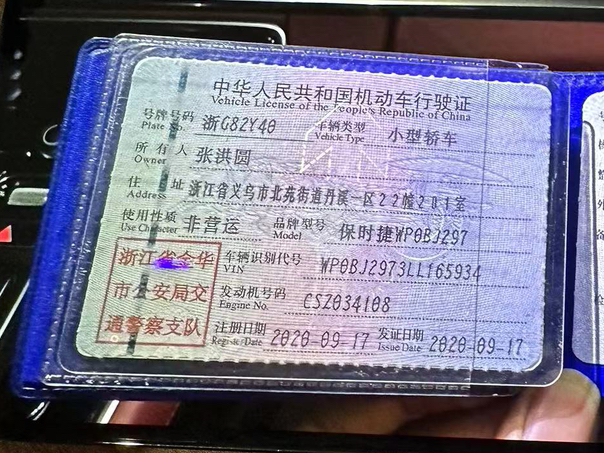 中华人民共和国机动车行驶证
Vehicle License of the People's Republic of China
号牌号码 浙G82Y40 车辆类型 小型轿车
Plate No. Vehicle Type
所有人 张洪圆
Owner
住址 浙江省义乌市北苑街道丹溪一区22幢201室
Address
使用性质 非营运 品牌型号 保时捷WP0BJ297
Use Character Model
浙江省金华 车辆识别代号 WP0BJ2973LL165934
VIN
市公安局交 发动机号码 CSZ034108
Engine No.
通警察支队 注册日期 2020-09-17 发证日期 2020-09-17
Register Date Issue Date